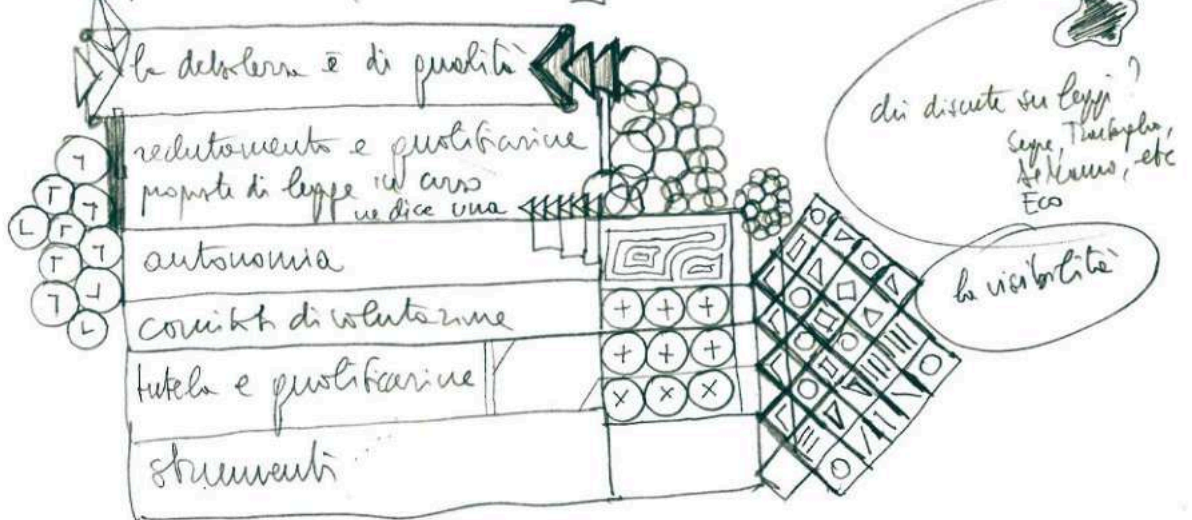 la debolezza è di qualità
reclutamento e qualificazione
proposte di legge in corso
ne dice una
autonomia
comitati di valutazione
tutela e qualificazione
strumenti
chi discute su leggi?
Segre,
etc
Eco
la visibilità